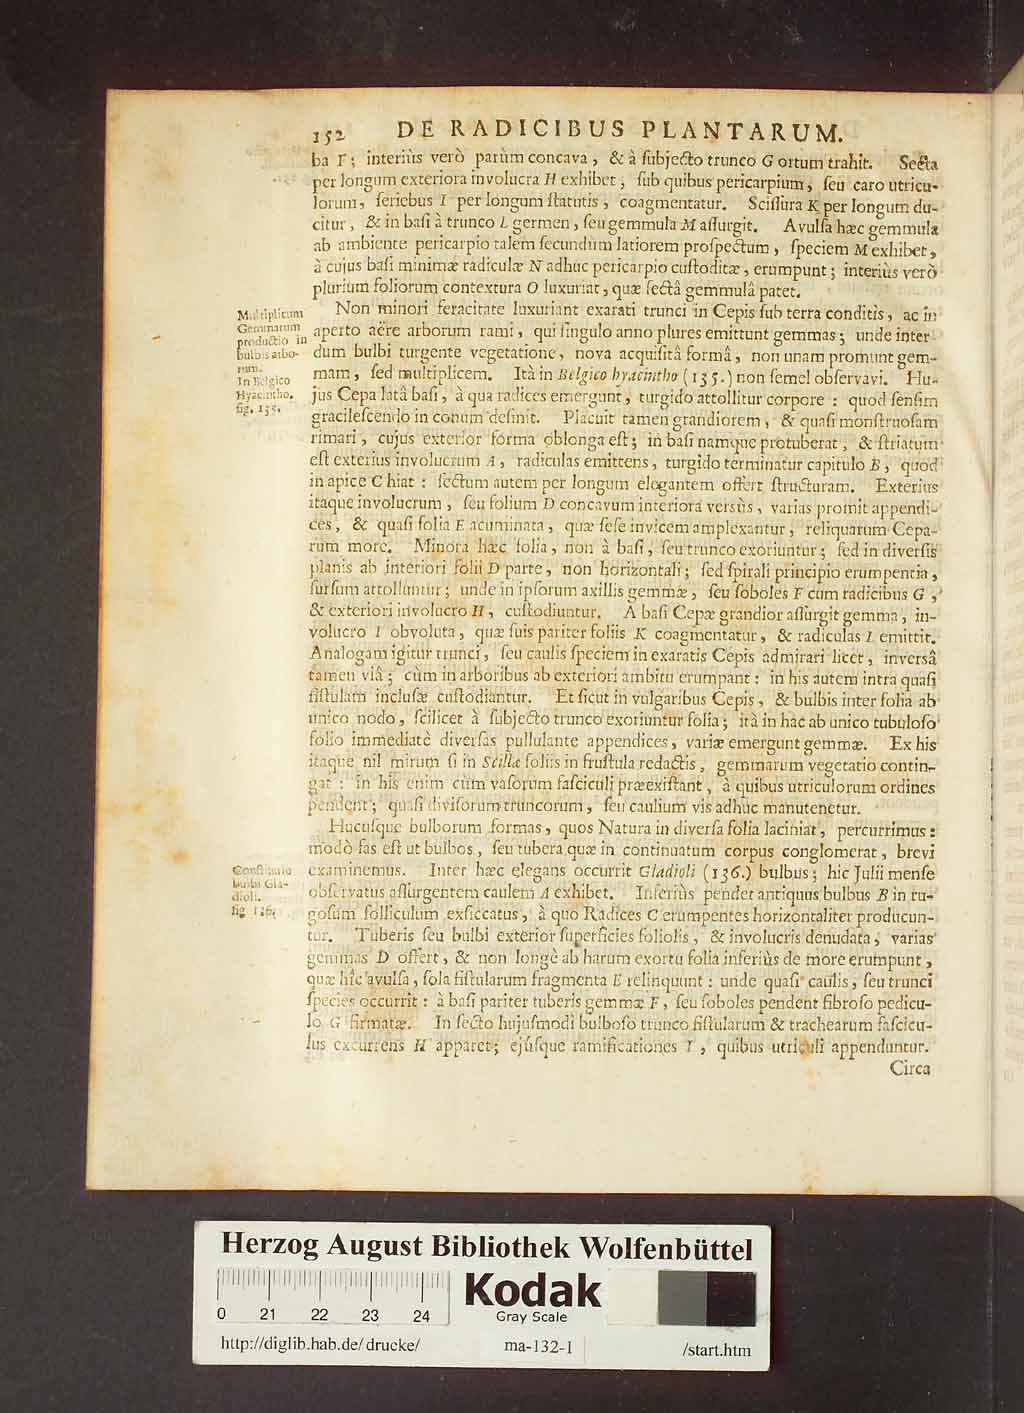 152 DE RADICIBUS PLANTARUM.
ba F; interiùs verò parùm concava, & à ſubjecto trunco G ortum trahit. Secta
per longum exteriora involucra H exhibet, ſub quibus pericarpium, ſeu caro utricu-
lorum, ſeriebus I per longum ſtatutis, coagmentatur. Sciſſura K per longum du-
citur, & in baſi à trunco L germen, ſeu gemmula M aſſurgit. Avulſa hæc gemmula
ab ambiente pericarpio talem ſecundùm latiorem proſpectum, ſpeciem M exhibet,
à cujus baſi minimæ radiculæ N adhuc pericarpio cuſtoditæ, erumpunt; interiùs verò
plurium foliorum contextura O luxuriat, quæ ſectâ gemmulâ patet.
Multiplicum
Gemmarum
productio in
bulbis arbo-
rum.
In Belgico
Hyacintho.
fig. 135.
Non minori feracitate luxuriant exarati trunci in Cepis ſub terra conditis, ac in
aperto aëre arborum rami, qui ſingulo anno plures emittunt gemmas; unde inter
dum bulbi turgente vegetatione, nova acquiſitâ formâ, non unam promunt gem-
mam, ſed multiplicem. Ità in Belgico hyacintho (135.) non ſemel obſervavi. Hu-
jus Cepa latâ baſi, à qua radices emergunt, turgido attollitur corpore: quod ſenſim
gracileſcendo in conum definit. Placuit tamen grandiorem, & quaſi monſtruoſam
rimari, cujus exterior forma oblonga eſt; in baſi namque protuberat, & ſtriatum
eſt exterius involucrum A, radiculas emittens, turgido terminatur capitulo B, quod
in apice C hiat: ſectum autem per longum elegantem offert ſtructuram. Exterius
itaque involucrum, ſeu folium D concavum interiora versùs, varias promit appendi-
ces, & quaſi folia E acuminata, quæ ſeſe invicem amplexantur, reliquarum Cepa-
rum more. Minora hæc folia, non à baſi, ſeu trunco exoriuntur; ſed in diverſis
planis ab interiori folii D parte, non horizontali; ſed ſpirali principio erumpentia,
ſurſum attolluntur; unde in ipſorum axillis gemmæ, ſeu ſoboles F cum radicibus G,
& exteriori involucro H, cuſtodiuntur. A baſi Cepæ grandior aſſurgit gemma, in-
volucro I obvoluta, quæ ſuis pariter foliis K coagmentatur, & radiculas L emittit.
Analogam igitur trunci, ſeu caulis ſpeciem in exaratis Cepis admirari licet, inverſâ
tamen viâ; cùm in arboribus ab exteriori ambitu erumpant: in his autem intra quaſi
fiſtulam incluſæ cuſtodiantur. Et ſicut in vulgaribus Cepis, & bulbis inter folia ab
unico nodo, ſcilicet à ſubjecto trunco exoriuntur folia; ità in hac ab unico tubuloſo
folio immediatè diverſas pullulante appendices, variæ emergunt gemmæ. Ex his
itaque nil mirum ſi in Scillæ foliis in fruſtula redactis, gemmarum vegetatio contin-
gat: in his enim cum vaſorum faſciculi præexiſtant, à quibus utriculorum ordines
pendent; quaſi diviſorum truncorum, ſeu caulium vis adhuc manutenetur.
Hucuſque bulborum formas, quos Natura in diverſa folia laciniat, percurrimus:
modò fas eſt ut bulbos, ſeu tubera quæ in continuatum corpus conglomerat, brevi
Conſtitutio
bulbi Gla-
dioli.
fig. 136.
examinemus. Inter hæc elegans occurrit Gladioli (136.) bulbus; hic Julii menſe
obſervatus aſſurgentem caulem A exhibet. Inferiùs pendet antiquus bulbus B in ru-
goſum folliculum exſiccatus, à quo Radices C erumpentes horizontaliter producun-
tur. Tuberis ſeu bulbi exterior ſuperficies foliolis, & involucris denudata, varias
gemmas D offert, & non longè ab harum exortu folia inferiùs de more erumpunt,
quæ hîc avulſa, ſola fiſtularum fragmenta E relinquunt: unde quaſi caulis, ſeu trunci
ſpecies occurrit: à baſi pariter tuberis gemmæ F, ſeu ſoboles pendent fibroſo pedicu-
lo G firmatæ. In ſecto hujuſmodi bulboſo trunco fiſtularum & trachearum faſcicu-
lus excurrens H apparet; ejúſque ramificationes I, quibus utriculi appenduntur.
Circa
Herzog August Bibliothek Wolfenbüttel
Kodak
Gray Scale
0 21 22 23 24
http://diglib.hab.de/drucke/ ma-132-1 /start.htm